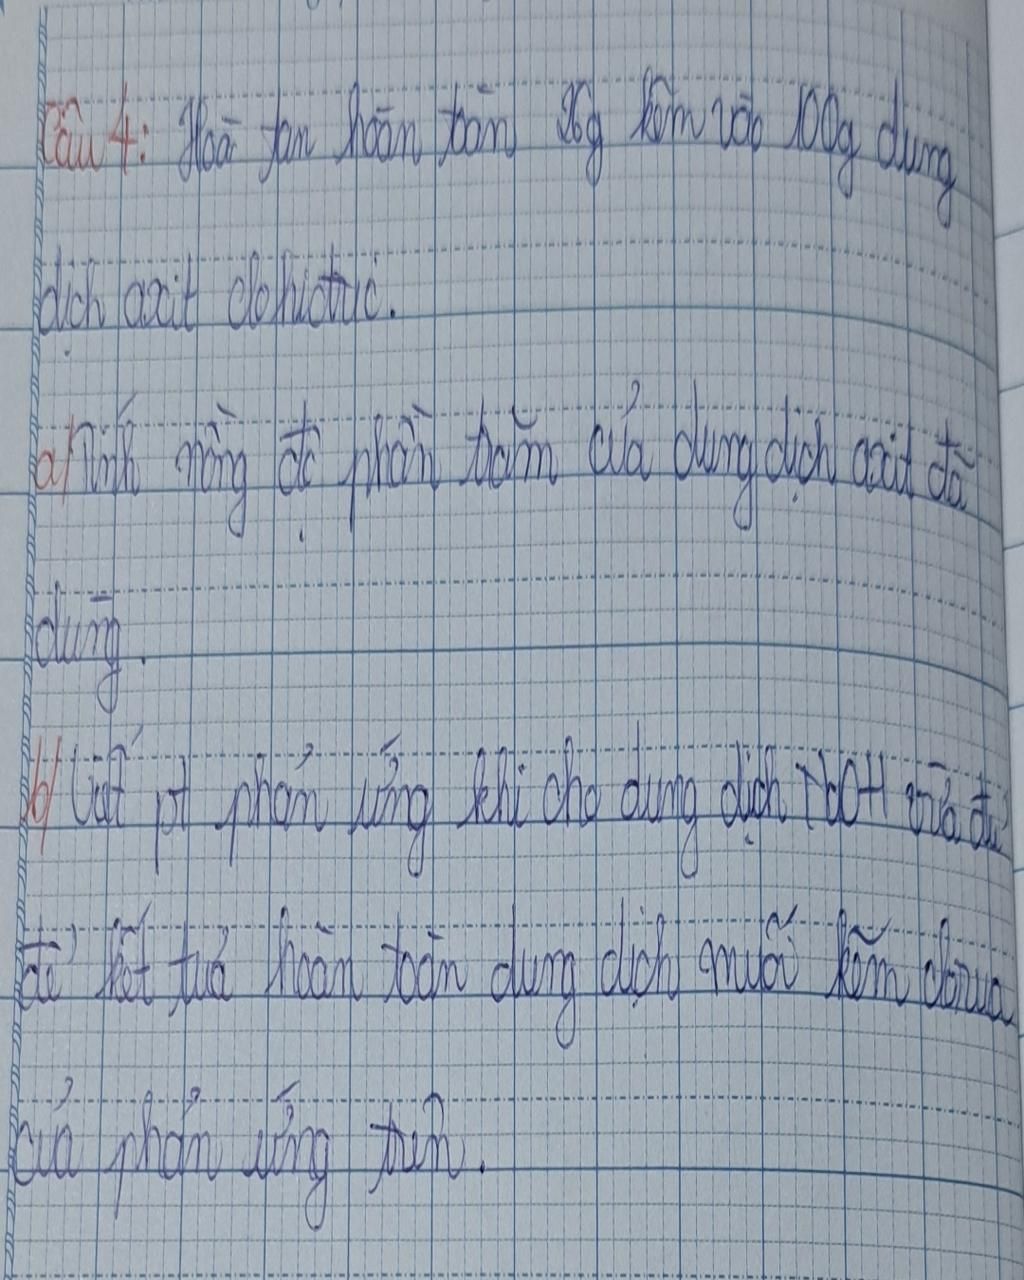 Câu 4: Hoà tan hoàn toàn 26g kẽm vào 100g dung
dịch axit clohiđric.
a/ Tính nồng độ phần trăm của dung dịch axit đã
dùng.
b/ Viết pt phản ứng khi cho dung dịch NaOH vừa đủ
để kết tủa hoàn toàn dung dịch muối kẽm clorua
của phản ứng trên.